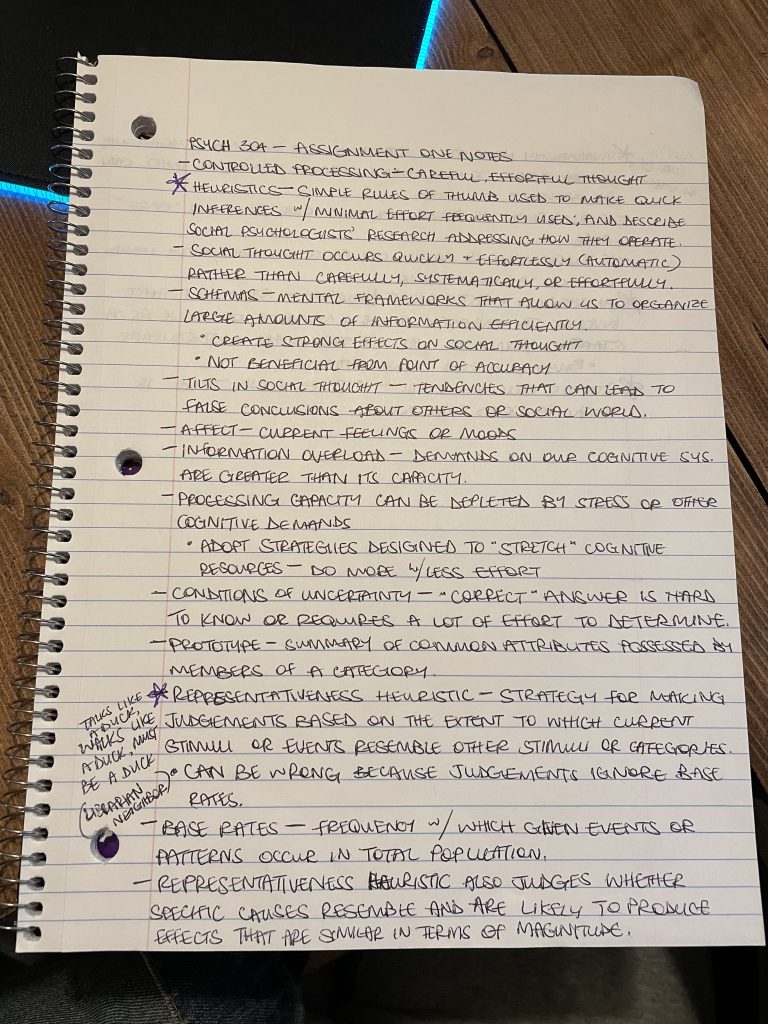 PSYCH 304 – ASSIGNMENT ONE NOTES
– CONTROLLED PROCESSING – CAREFUL, EFFORTFUL THOUGHT
* HEURISTICS – SIMPLE RULES OF THUMB USED TO MAKE QUICK
INFERENCES W/ MINIMAL EFFORT FREQUENTLY USED, AND DESCRIBE
SOCIAL PSYCHOLOGISTS' RESEARCH ADDRESSING HOW THEY OPERATE.
– SOCIAL THOUGHT OCCURS QUICKLY + EFFORTLESSLY (AUTOMATIC)
RATHER THAN CAREFULLY, SYSTEMATICALLY, OR EFFORTFULLY.
– SCHEMAS – MENTAL FRAMEWORKS THAT ALLOW US TO ORGANIZE
LARGE AMOUNTS OF INFORMATION EFFICIENTLY.
• CREATE STRONG EFFECTS ON SOCIAL THOUGHT
• NOT BENEFICIAL FROM POINT OF ACCURACY
– TILTS IN SOCIAL THOUGHT – TENDENCIES THAT CAN LEAD TO
FALSE CONCLUSIONS ABOUT OTHERS OR SOCIAL WORLD.
– AFFECT – CURRENT FEELINGS OR MOODS
– INFORMATION OVERLOAD – DEMANDS ON OUR COGNITIVE SYS.
ARE GREATER THAN ITS CAPACITY.
– PROCESSING CAPACITY CAN BE DEPLETED BY STRESS OR OTHER
COGNITIVE DEMANDS
• ADOPT STRATEGIES DESIGNED TO "STRETCH" COGNITIVE
RESOURCES – DO MORE W/ LESS EFFORT
– CONDITIONS OF UNCERTAINTY – "CORRECT" ANSWER IS HARD
TO KNOW OR REQUIRES A LOT OF EFFORT TO DETERMINE.
– PROTOTYPE – SUMMARY OF COMMON ATTRIBUTES POSSESSED BY
MEMBERS OF A CATEGORY.
* REPRESENTATIVENESS HEURISTIC – STRATEGY FOR MAKING
JUDGEMENTS BASED ON THE EXTENT TO WHICH CURRENT
STIMULI OR EVENTS RESEMBLE OTHER STIMULI OR CATEGORIES.
• CAN BE WRONG BECAUSE JUDGEMENTS IGNORE BASE
RATES.
TALKS LIKE
A DUCK,
WALKS LIKE
A DUCK, MUST
BE A DUCK
(LIBRARIAN
NEIGHBOR)
– BASE RATES – FREQUENCY W/ WHICH GIVEN EVENTS OR
PATTERNS OCCUR IN TOTAL POPULATION.
– REPRESENTATIVENESS HEURISTIC ALSO JUDGES WHETHER
SPECIFIC CAUSES RESEMBLE AND ARE LIKELY TO PRODUCE
EFFECTS THAT ARE SIMILAR IN TERMS OF MAGNITUDE.